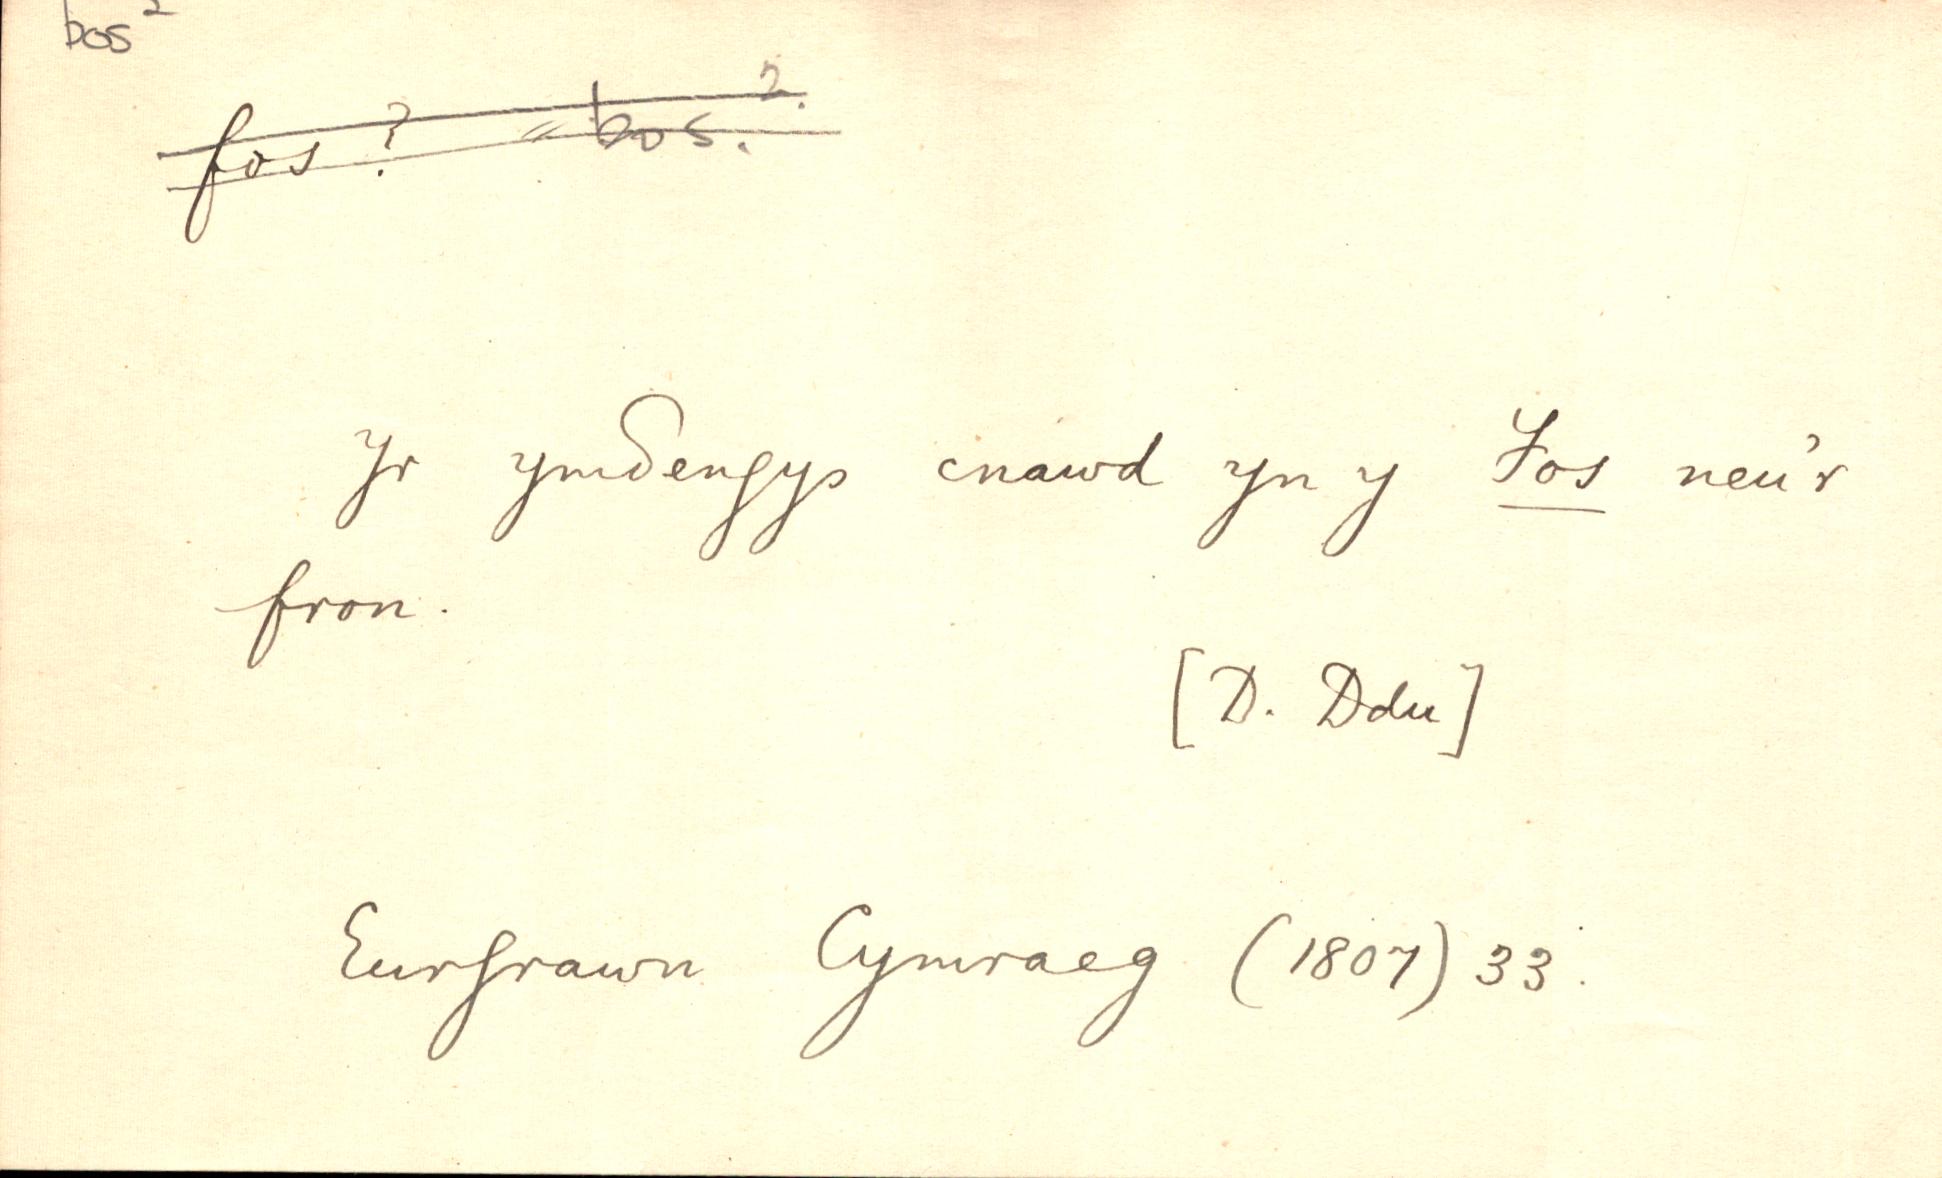 bos²
fos? = bos².
Yr ymδengys cnawd yn y Fos neu'r
fron.
[D. Ddu]
Eurgrawn Cymraeg (1807) 33.